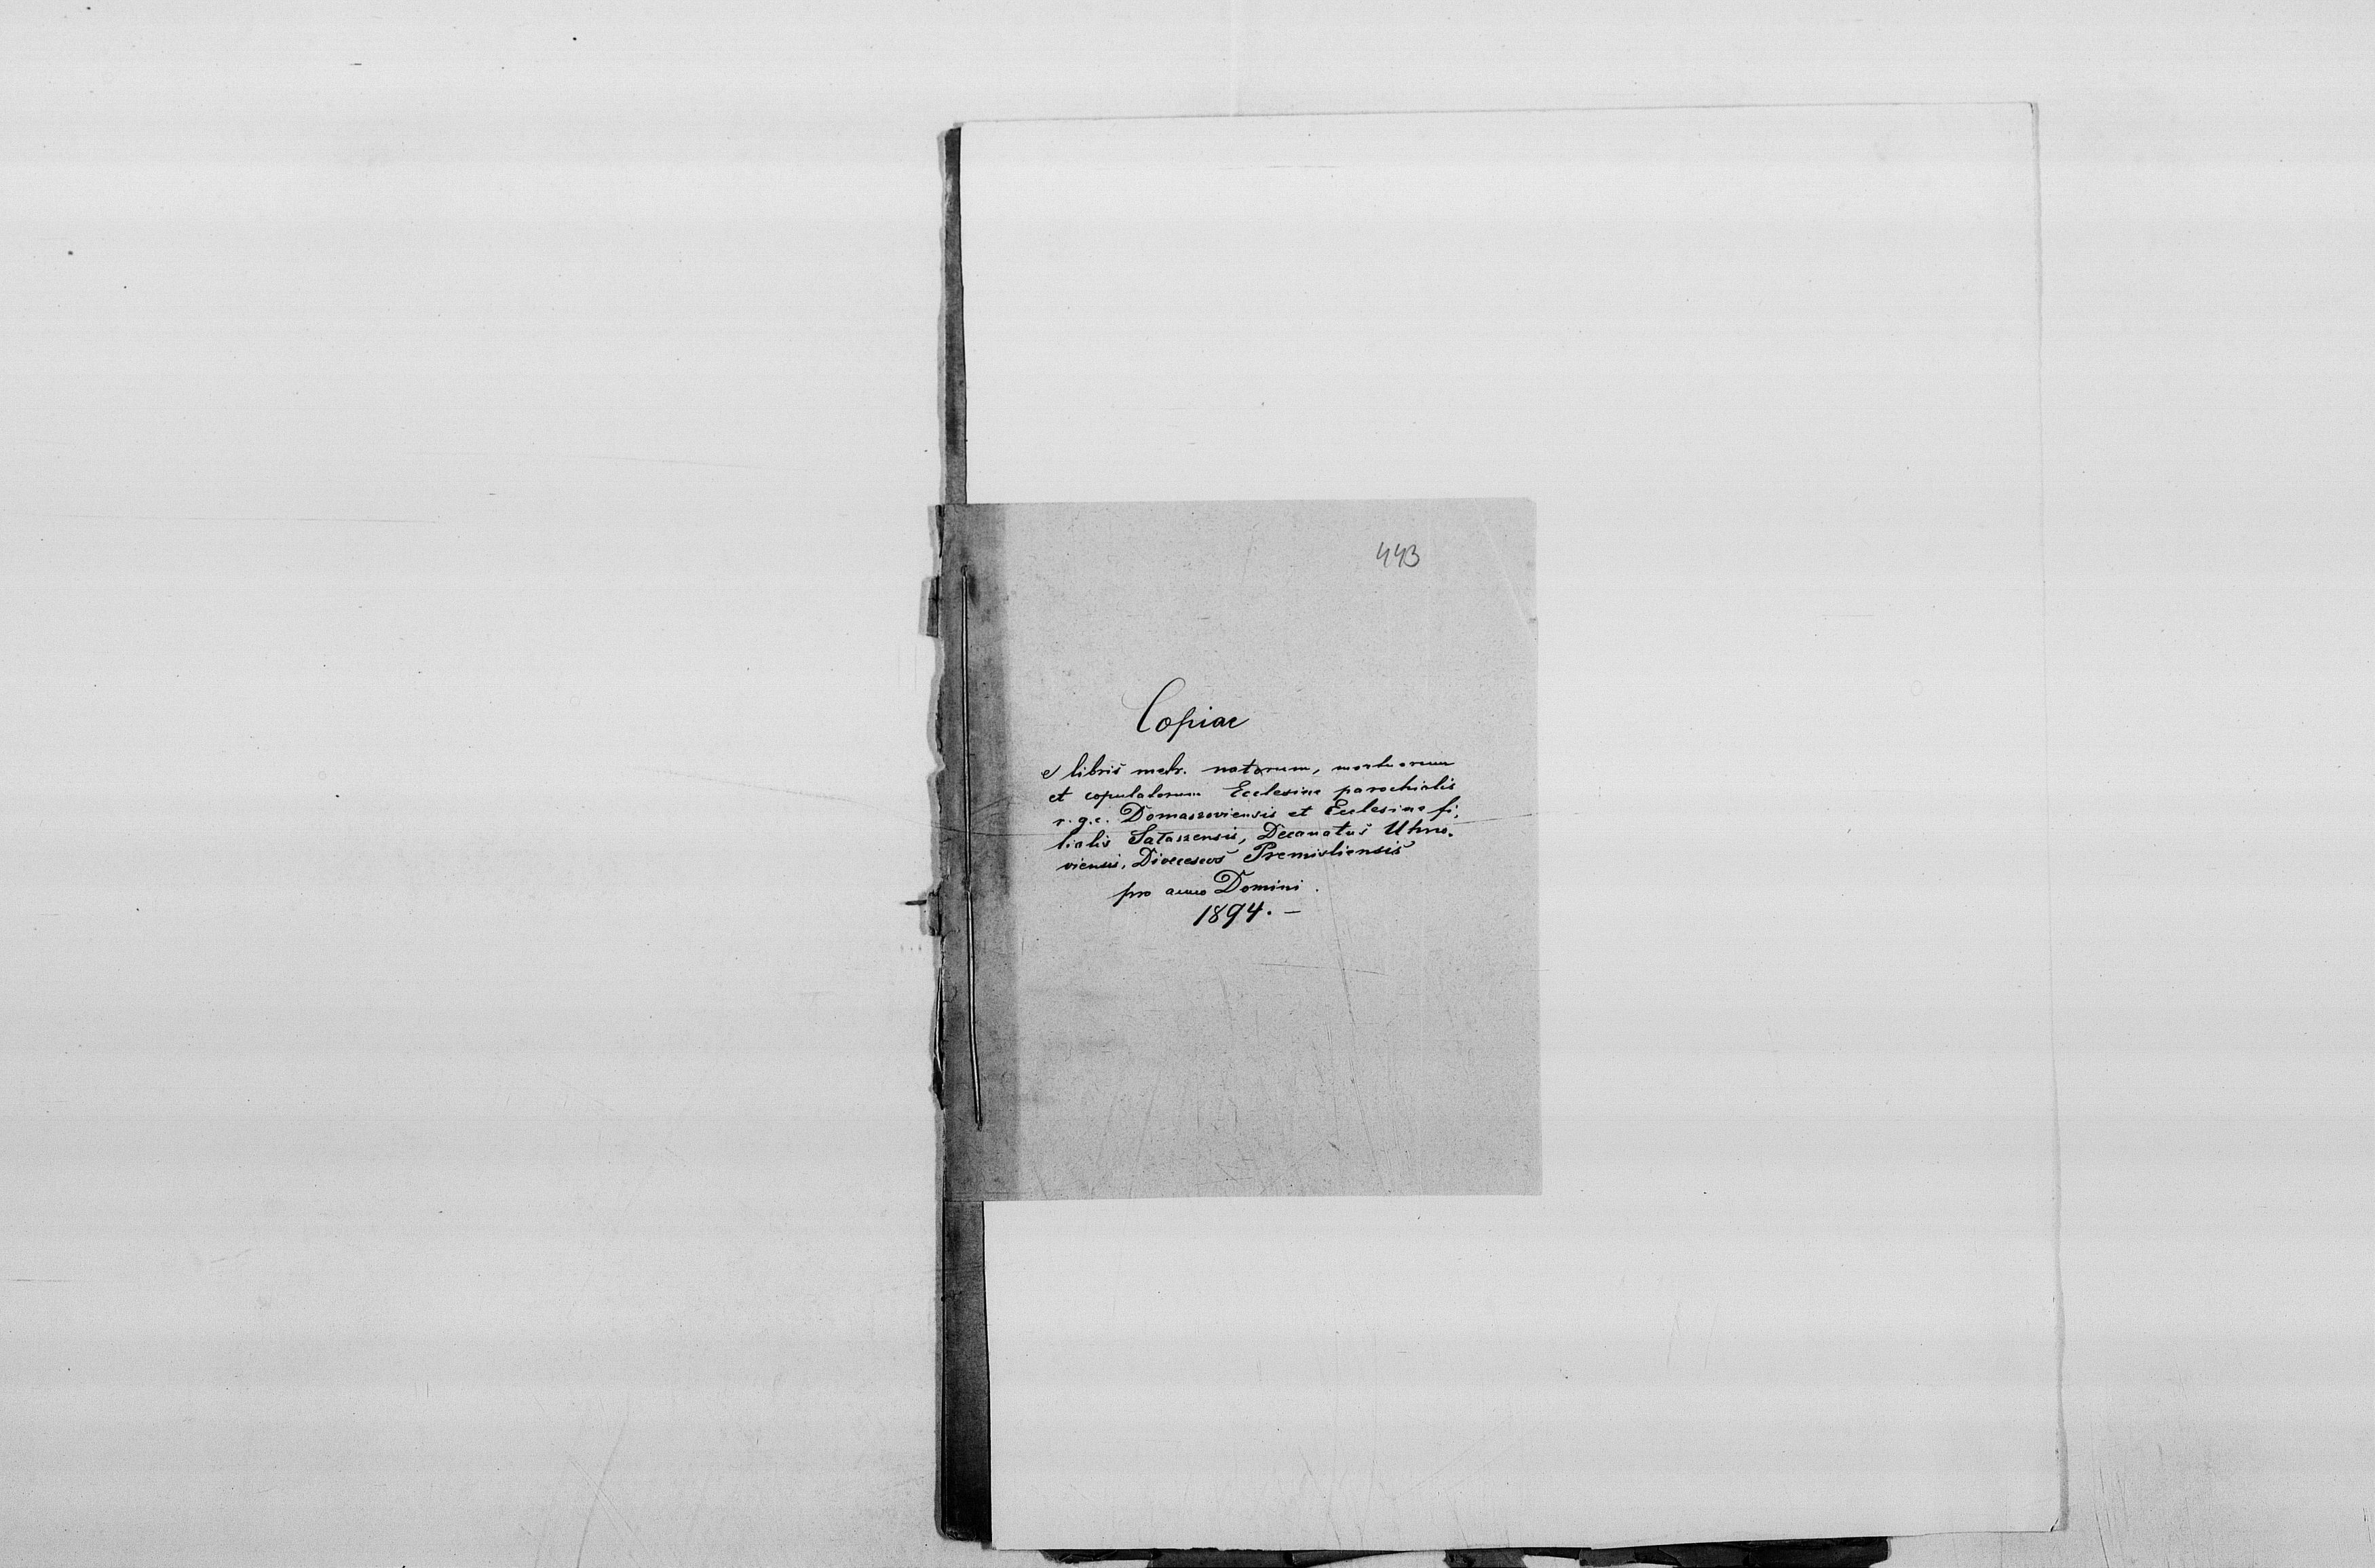 443
Copiae
e libris metr. natorum, mortuorum
et copulatorum Ecclesiae parochialis
r. g. c. Domaszoviensis et Ecclesiae fi,
lialis Sałaszensis, Decanatus Uhno,
viensis, Dioeceseos Premisliensis
pro anno Domini.
1894. –